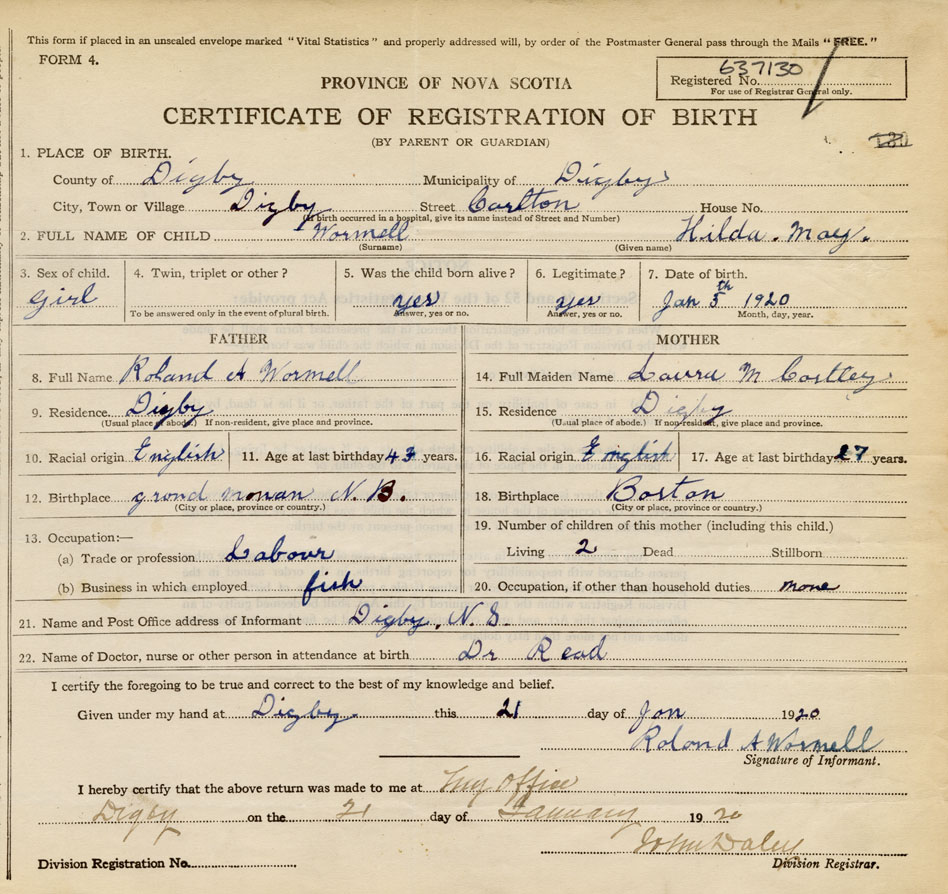 This form if placed in an unsealed envelope marked "Vital Statistics" and properly addressed will, by order of the Postmaster General pass through the Mails "FREE."
FORM 4.
637130
Registered No.
For use of Registrar General only.
PROVINCE OF NOVA SCOTIA
CERTIFICATE OF REGISTRATION OF BIRTH
(BY PARENT OR GUARDIAN)
1. PLACE OF BIRTH.
County of Digby Municipality of Digby
City, Town or Village Digby Street Carlton House No.
(If birth occurred in a hospital, give its name instead of Street and Number)
2. FULL NAME OF CHILD Wormell Hilda. May.
(Surname) (Given name)
3. Sex of child. 4. Twin, triplet or other? 5. Was the child born alive? 6. Legitimate? 7. Date of birth.
Girl yes yes Jan 5th 1920
To be answered only in the event of plural birth. Answer, yes or no. Answer, yes or no. Month, day, year.
FATHER MOTHER
8. Full Name Roland A Wormell 14. Full Maiden Name Laura M
9. Residence. Digby 15. Residence Digby
(Usual place of abode.) If non-resident, give place and province. (Usual place of abode.) If non-resident, give place and province.
10. Racial origin English 11. Age at last birthday 43 years. 16. Racial origin English 17. Age at last birthday 27 years.
12. Birthplace grond monan N. B. 18. Birthplace Boston
(City or place, province or country.) (City or place, province or country.)
13. Occupation:— 19. Number of children of this mother (including this child.)
(a) Trade or profession Labour Living 2 Dead Stillborn
(b) Business in which employed fish 20. Occupation, if other than household duties none
21. Name and Post Office address of Informant Digby. N. S.
22. Name of Doctor, nurse or other person in attendance at birth Dr Read
I certify the foregoing to be true and correct to the best of my knowledge and belief.
Given under my hand at Digby this 21 day of Jan 1920
Roland A Wormell
Signature of Informant.
I hereby certify that the above return was made to me at my office
Digby on the 21 day of January 1920
John Daley
Division Registration No. Division Registrar.